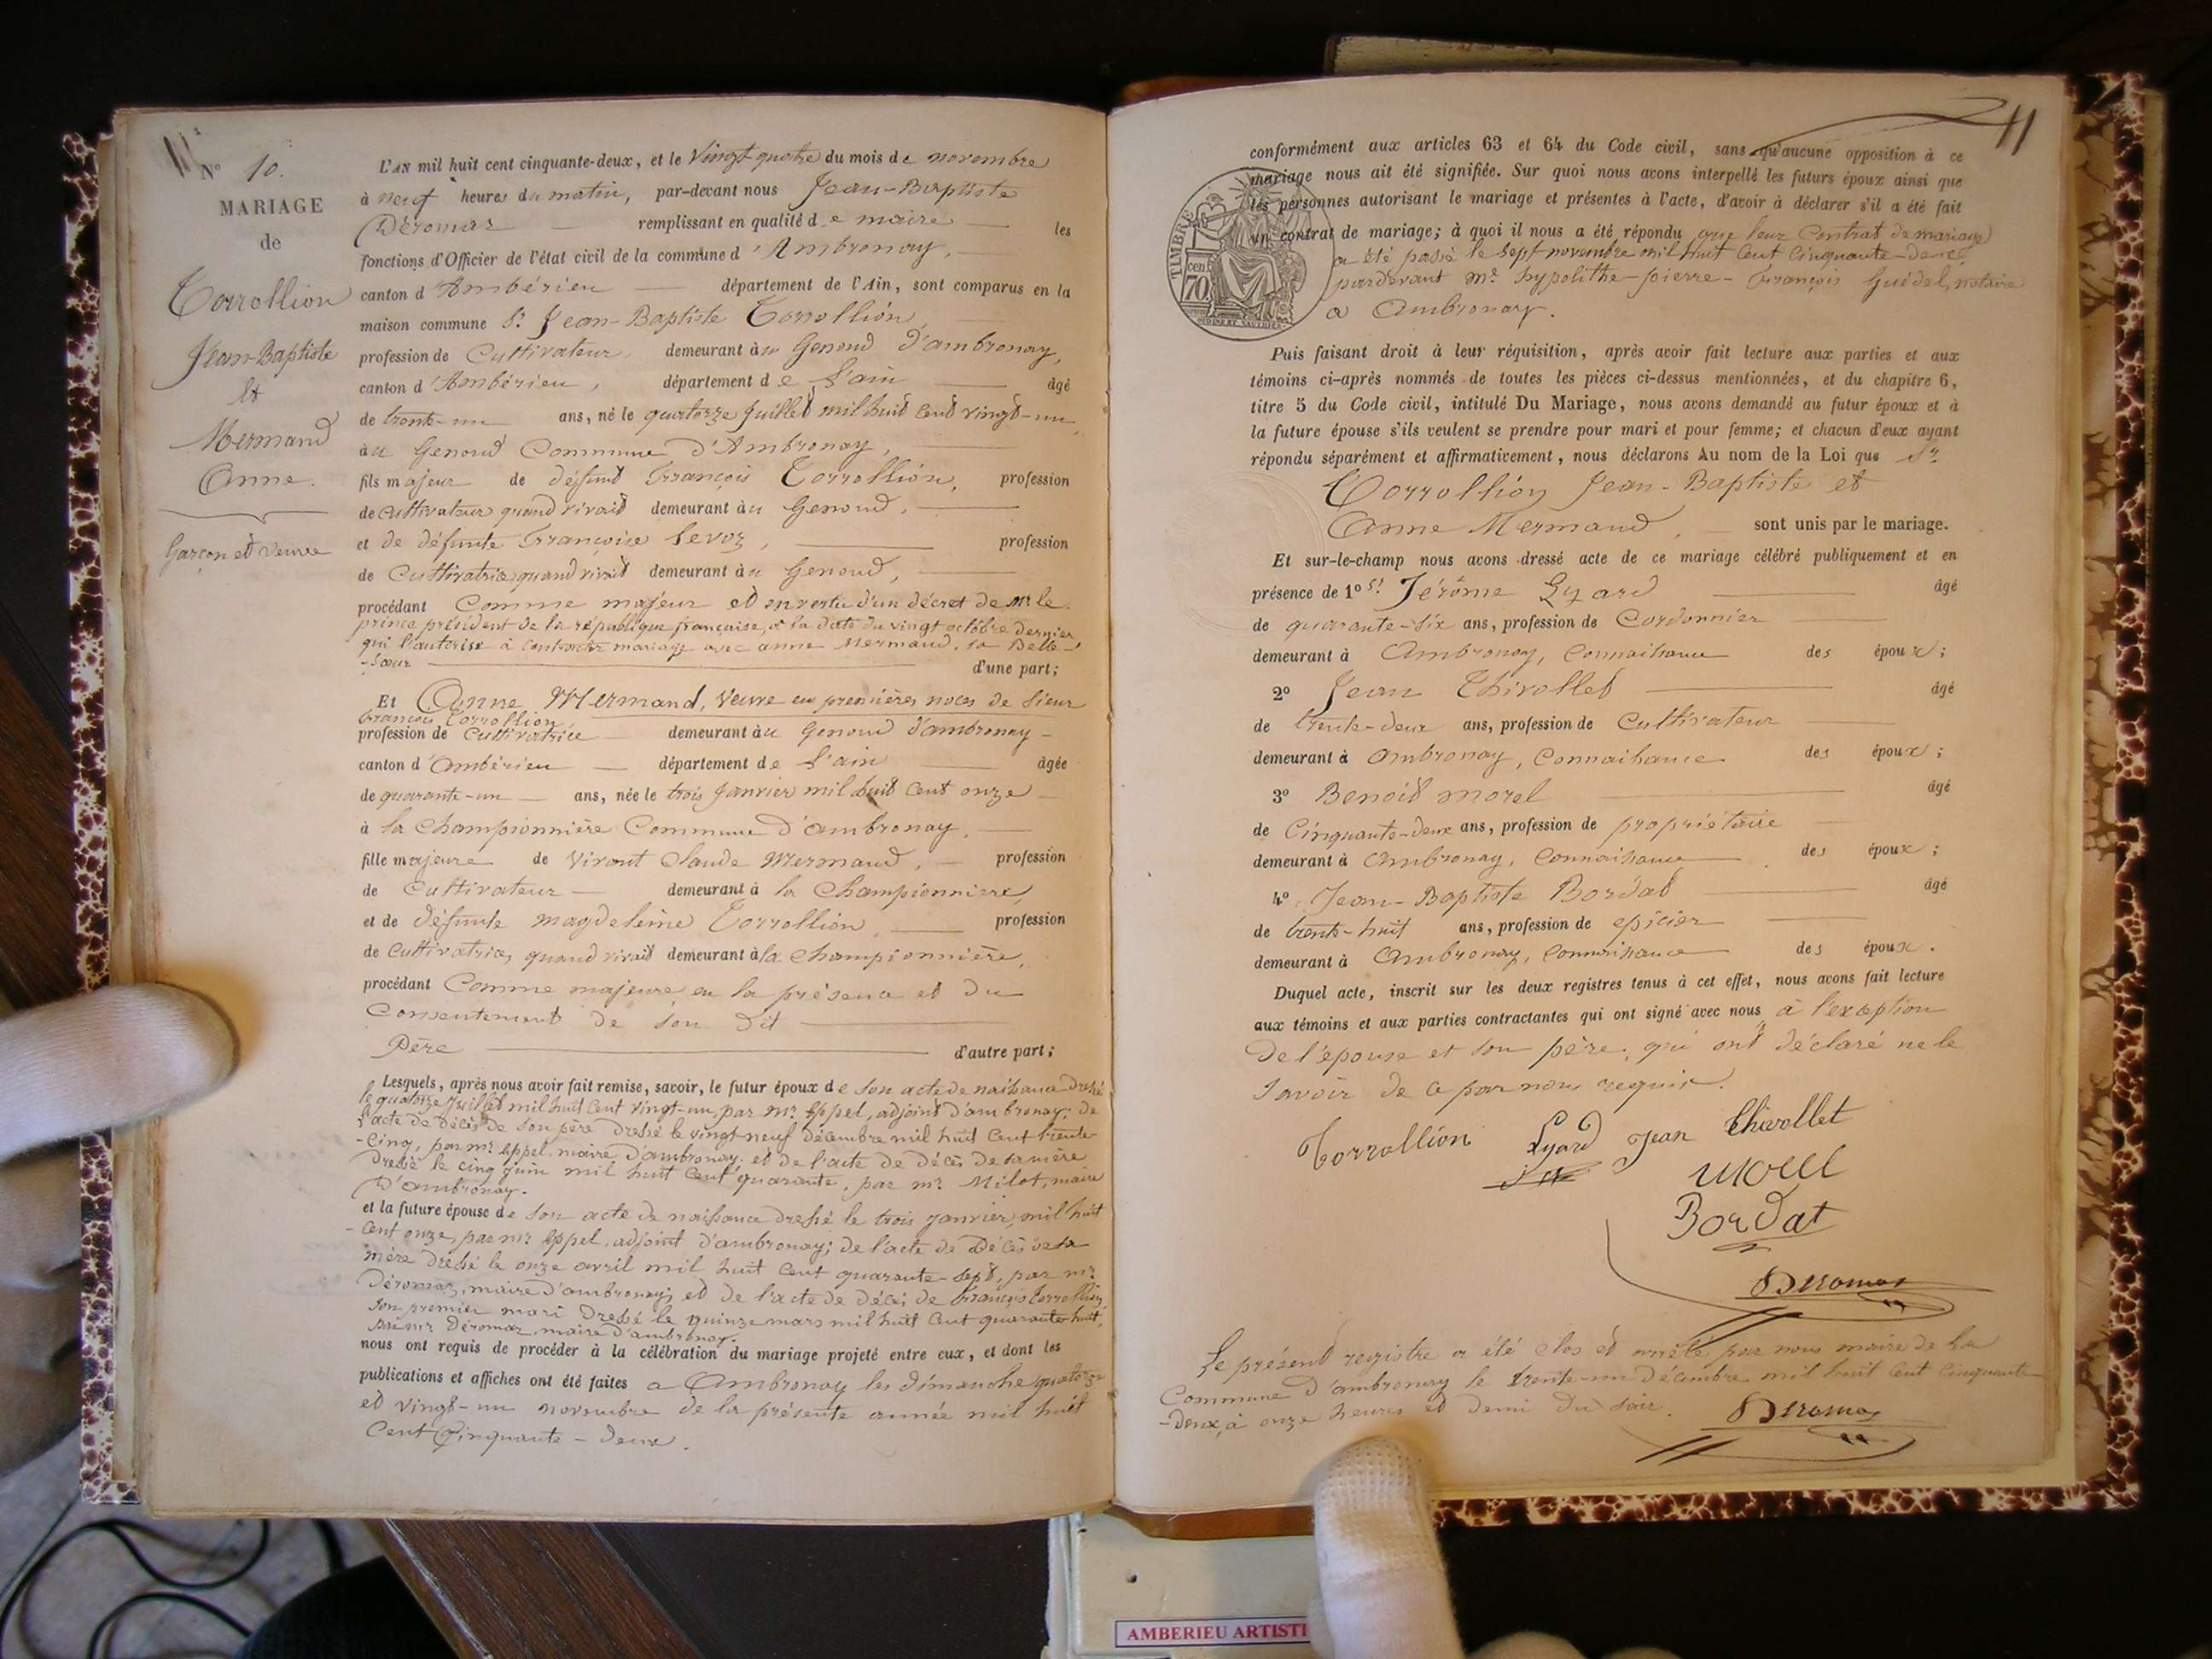 N° 10.
MARIAGE
de
Torrollion
Jean-Baptiste
et
Mermand
Anne.
Garçon et Veuve
L'AN mil huit cent cinquante-deux, et le Vingt quatre du mois de novembre
à neuf heures du matin, par-devant nous Jean-Baptiste
Déromas remplissant en qualité de maire les
fonctions d'Officier de l'état civil de la commune d'Ambronay,
canton d'Ambérieu département de l'Ain, sont comparus en la
maison commune Sr Jean-Baptiste Torrollion,
profession de Cultivateur, demeurant au Genoud d'ambronay,
canton d'Ambérieu, département de l'ain âgé
de trente-un ans, né le quatorze Juillet mil huit cent vingt-un,
au Genoud Commune d'Ambronay,
fils majeur de défunt François Torrollion, profession
de cultivateur quand vivait demeurant au Genoud,
et de défunte Françoise Levoz, profession
de Cultivatrice quand vivait demeurant au Genoud,
procédant Comme majeur et en vertu d'un décret de Mr le
prince président de la république française, à la date du vingt octobre dernier
qui l'autorise à contracter mariage avec anne Mermand, sa Belle-
-Sœur d'une part;
Et Anne Mermand, Veuve en premières noces de Sieur
François Torrollion,
profession de Cultivatrice demeurant au Genoud d'ambronay
canton d'ambérieu département de l'ain âgée
de quarante-un ans, née le trois Janvier mil huit cent onze
à la Championnière Commune d'ambronay,
fille majeure de vivant Claude Mermand, profession
de Cultivateur demeurant à la Championnière,
et de défunte magdeleine Torrollion profession
de cultivatrice, quand vivait demeurant à la Championnière,
procédant Comme majeure, en la présence et du
Consentement de son dit
Père d'autre part;
Lesquels, après nous avoir fait remise, savoir, le futur époux de son acte de naissance dressé
le quatorze Juillet mil huit cent vingt-un, par mr Eppel, adjoint d'ambronay; de
l'acte de décès de son père dressé le vingt neuf décembre mil huit cent trente-
-cinq, par mr Eppel, maire d'ambronay; et de l'acte de décès de sa mère
dressé le cinq juin mil huit cent quarante, par mr Milot, maire
d'ambronay.
et la future épouse de son acte de naissance dressé le trois janvier mil huit
-cent onze, par mr Eppel, adjoint d'ambronay; de l'acte de décès de sa
mère dressé le onze avril mil huit cent quarante-sept, par mr
Déromas, maire d'ambronay; et de l'acte de décès de François Torrollion
son premier mari dressé le quinze mars mil huit cent quarante huit,
par mr Déromas, maire d'ambronay.
nous ont requis de procéder à la célébration du mariage projeté entre eux, et dont les
publications et affiches ont été faites a Ambronay les dimanche quatorze
et vingt-un novembre de la présente année mil huit
cent cinquante-deux.
11
conformément aux articles 63 et 64 du Code civil, sans qu'aucune opposition à ce
mariage nous ait été signifiée. Sur quoi nous avons interpellé les futurs époux ainsi que
les personnes autorisant le mariage et présentes à l'acte, d'avoir à déclarer s'il a été fait
un contrat de mariage; à quoi il nous a été répondu que leur Contrat de mariage
a été passé le sept novembre mil huit cent cinquante-deux
pardevant Mr hypolithe-pierre-François Guédel, notaire
a Ambronay.
TIMBRE
70 cen
Puis faisant droit à leur réquisition, après avoir fait lecture aux parties et aux
témoins ci-après nommés de toutes les pièces ci-dessus mentionnées, et du chapitre 6,
titre 5 du Code civil, intitulé Du Mariage, nous avons demandé au futur époux et à
la future épouse s'ils veulent se prendre pour mari et pour femme; et chacun d'eux ayant
répondu séparément et affirmativement, nous déclarons Au nom de la Loi que Sr
Torrollion Jean-Baptiste et
Anne Mermand, sont unis par le mariage.
Et sur-le-champ nous avons dressé acte de ce mariage célébré publiquement et en
présence de 1° Sr Jérôme Lyard âgé
de quarante-six ans, profession de Cordonnier
demeurant à Ambronay, Connaissance des époux;
2° Jean Thivollet âgé
de trente-deux ans, profession de Cultivateur
demeurant à Ambronay, Connaissance des époux;
3° Benoit morel âgé
de Cinquante-deux ans, profession de propriétaire
demeurant à Ambronay, Connaissance des époux;
4° Jean-Baptiste Bordat âgé
de trente-huit ans, profession de epicier
demeurant à Ambronay, Connaissance des époux.
Duquel acte, inscrit sur les deux registres tenus à cet effet, nous avons fait lecture
aux témoins et aux parties contractantes qui ont signé avec nous à l'exception
de l'épouse et son père, qui ont déclaré ne le
savoir de ce par nous requis.
Torrollion Lyard Jean Thivollet
Morel
Bordat
Deromas
Le présent registre a été clos et arrêté par nous maire de la
Commune d'ambronay le trente-un Décembre mil huit cent cinquante
-deux, à onze heures et demi du soir. Deromas
AMBERIEU ARTISTI